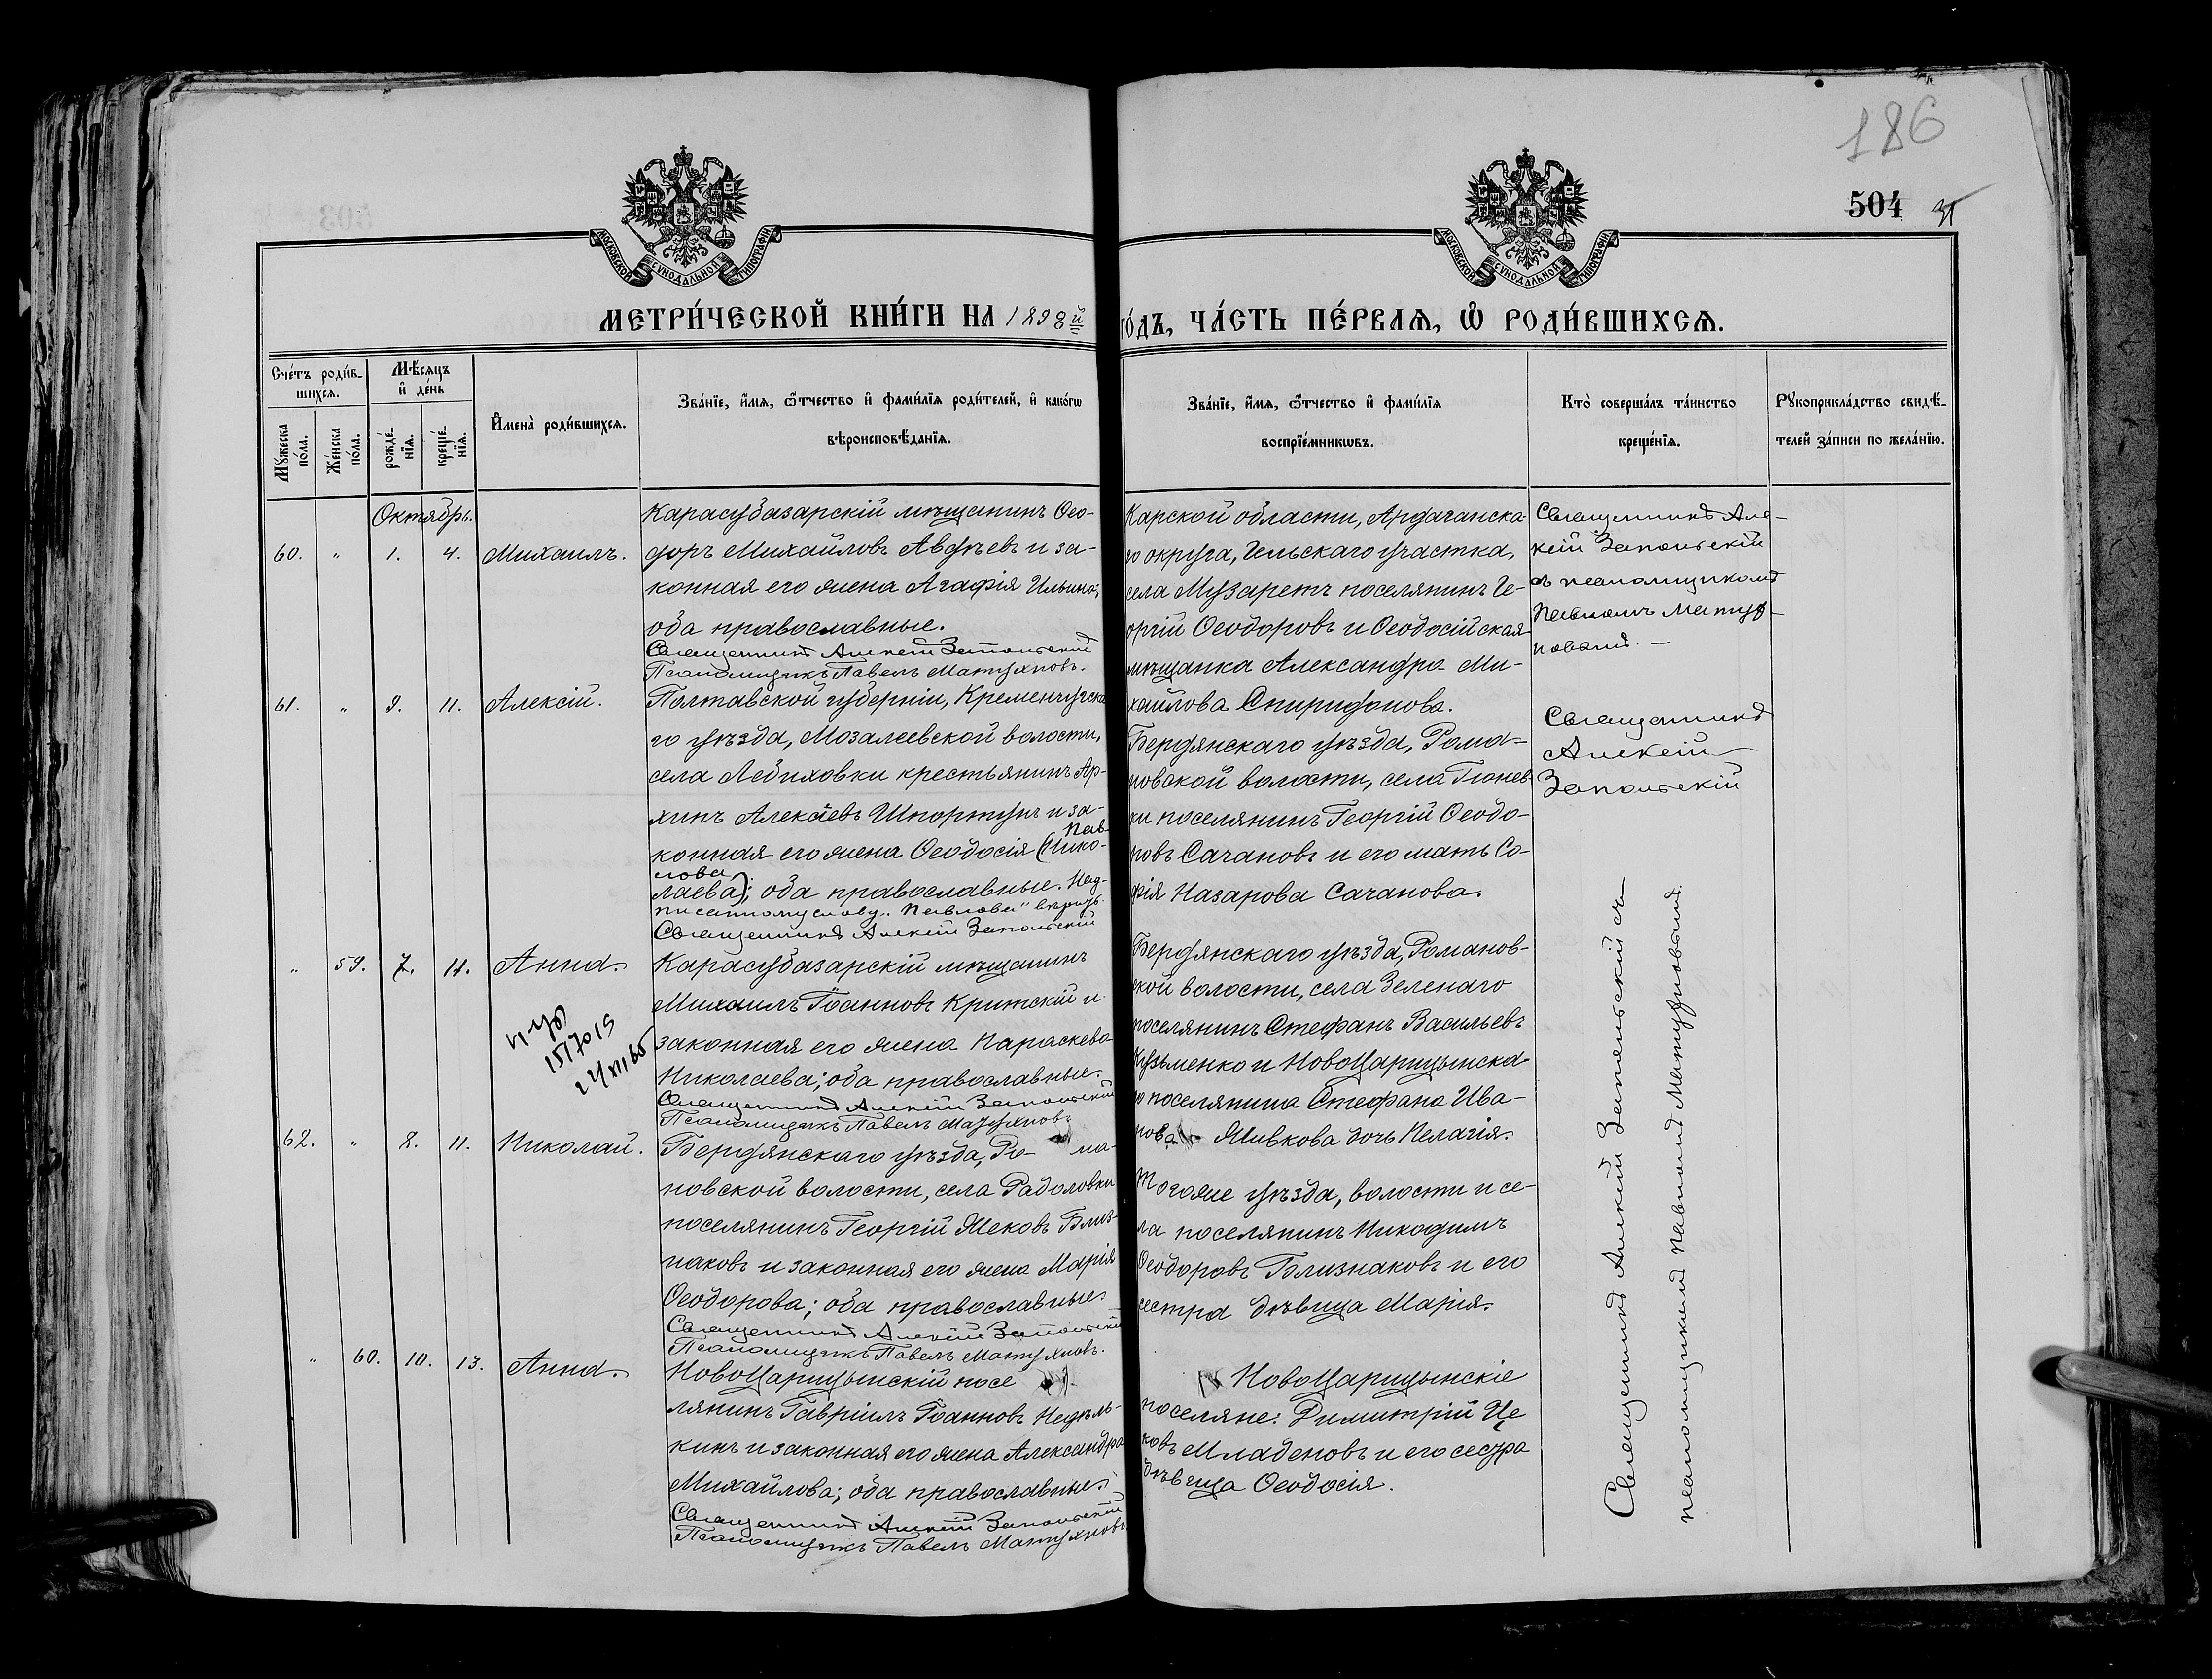 186
504
МОСКОВСКОЙ СѴНОДАЛЬНОЙ ТИПОГРАФІИ
МОСКОВСКОЙ СѴНОДАЛЬНОЙ ТИПОГРАФІИ
МЕТРИ́ЧЕСКОЙ КНИ́ГИ НА 1898й
ГО́ДЪ, ЧА́СТЬ ПЕ́РВАѦ, Ѡ РОДИ́ВШИХСѦ.
Сче́тъ роди́в-
шихсѧ.
Мꙋ́жеска по́ла.
Же́нска по́ла.
Мѣ́сѧцъ
и҆ де́нь
рожде́-
нїѧ.
креще́-
нїѧ.
И҆мена̀ роди́вшихсѧ.
Зва́нїе, и҆́мѧ, ѻ҆́тчество и҆ фами́лїѧ роди́телей, и҆ како́гѡ
вѣроисповѣ́данїѧ.
Зва́нїе, и҆́мѧ, ѻ҆́тчество и҆ фами́лїѧ
воспрїе́мникѡвъ.
Кто̀ соверша́лъ та́инство
креще́нїѧ.
Рꙋкоприкла́дство свидѣ́-
телей за́писи по жела́нїю.
Октябрь.
60. " 1. 4. Михаилъ.
Карасубазарскій мѣщанинъ Ѳео-
доръ Михайловъ Авдѣевъ и за-
конная его жена Агафія Ильина;
оба православные.
Священникъ Алексій Запольскій
Псаломщикъ Павелъ Матухновъ.
Карской области, Ардаганска-
го округа, Гельскаго участка,
села Музаретъ поселянинъ Ге-
оргій Ѳеодоровъ и Ѳеодосійская
мѣщанка Александра Ми-
хайлова Спиридонова.
Священникъ Але-
ксій Запольскій
съ псаломщикомъ
Павломъ Матух-
новымъ. —
61. " 9. 11. Алексій.
Полтавской губерніи, Кременчугска-
го уѣзда, Мозалеевской волости,
села Лебиховки крестьянинъ Ар-
хипъ Алексіевъ Шпортунъ и за-
конная его жена Ѳеодосія (Нико-
Пав-
лова
лаева); оба православные. Над-
писанному слову "Павлова" вѣрить.
Священникъ Алексій Запольскій
Бердянскаго уѣзда, Рома-
новской волости, села Гюнев-
ки поселянинъ Георгій Ѳеодо-
ровъ Сачановъ и его мать Со-
фія Назарова Сачанова.
Священникъ
Алексій
Запольскій
" 59. 7. 11. Анна.
1517015
Карасубазарскій мѣщанинъ
Михаилъ Іоанновъ Критскій и
законная его жена Параскева
Николаева; оба православные.
Священникъ Алексій Запольскій
Псаломщикъ Павелъ Матухновъ
Бердянскаго уѣзда, Романов-
ской волости, села Зеленаго
поселянинъ Стефанъ Васильевъ
Кузьменко и Новоцарицынска-
го поселянина Стефана Ива-
нова Живкова дочь Пелагія.
62. " 8. 11. Николай.
Бердянскаго уѣзда, Ро- ма-
новской волости, села Радоловки
поселянинъ Георгій Жековъ Близ-
наковъ и законная его жена Марія
Ѳеодорова; оба православные.
Священникъ Алексій Запольскій
Псаломщикъ Павелъ Матухновъ.
Тогоже уѣзда, волости и се-
ла поселянинъ Никодимъ
Ѳеодоровъ Близнаковъ и его
сестра дѣвица Марія.
" 60. 10. 13. Анна.
Новоцарицынскій посе
лянинъ Гавріилъ Іоанновъ Недѣль-
кинъ и законная его жена Александра
Михайлова; оба православные.
Священникъ Алексій Запольскій
Псаломщикъ Павелъ Матухновъ.
Новоцарицынскіе
поселяне: Димитрій Це
ковъ Младеновъ и его сестра
дѣвица Ѳеодосія.
Священникъ Алексій Запольскій съ
псаломщикомъ Павломъ Матухновымъ.